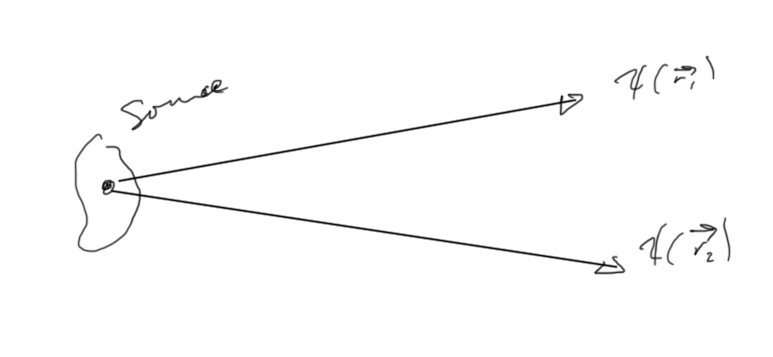 Source
ψ(r⃗₁)
ψ(r⃗₂)